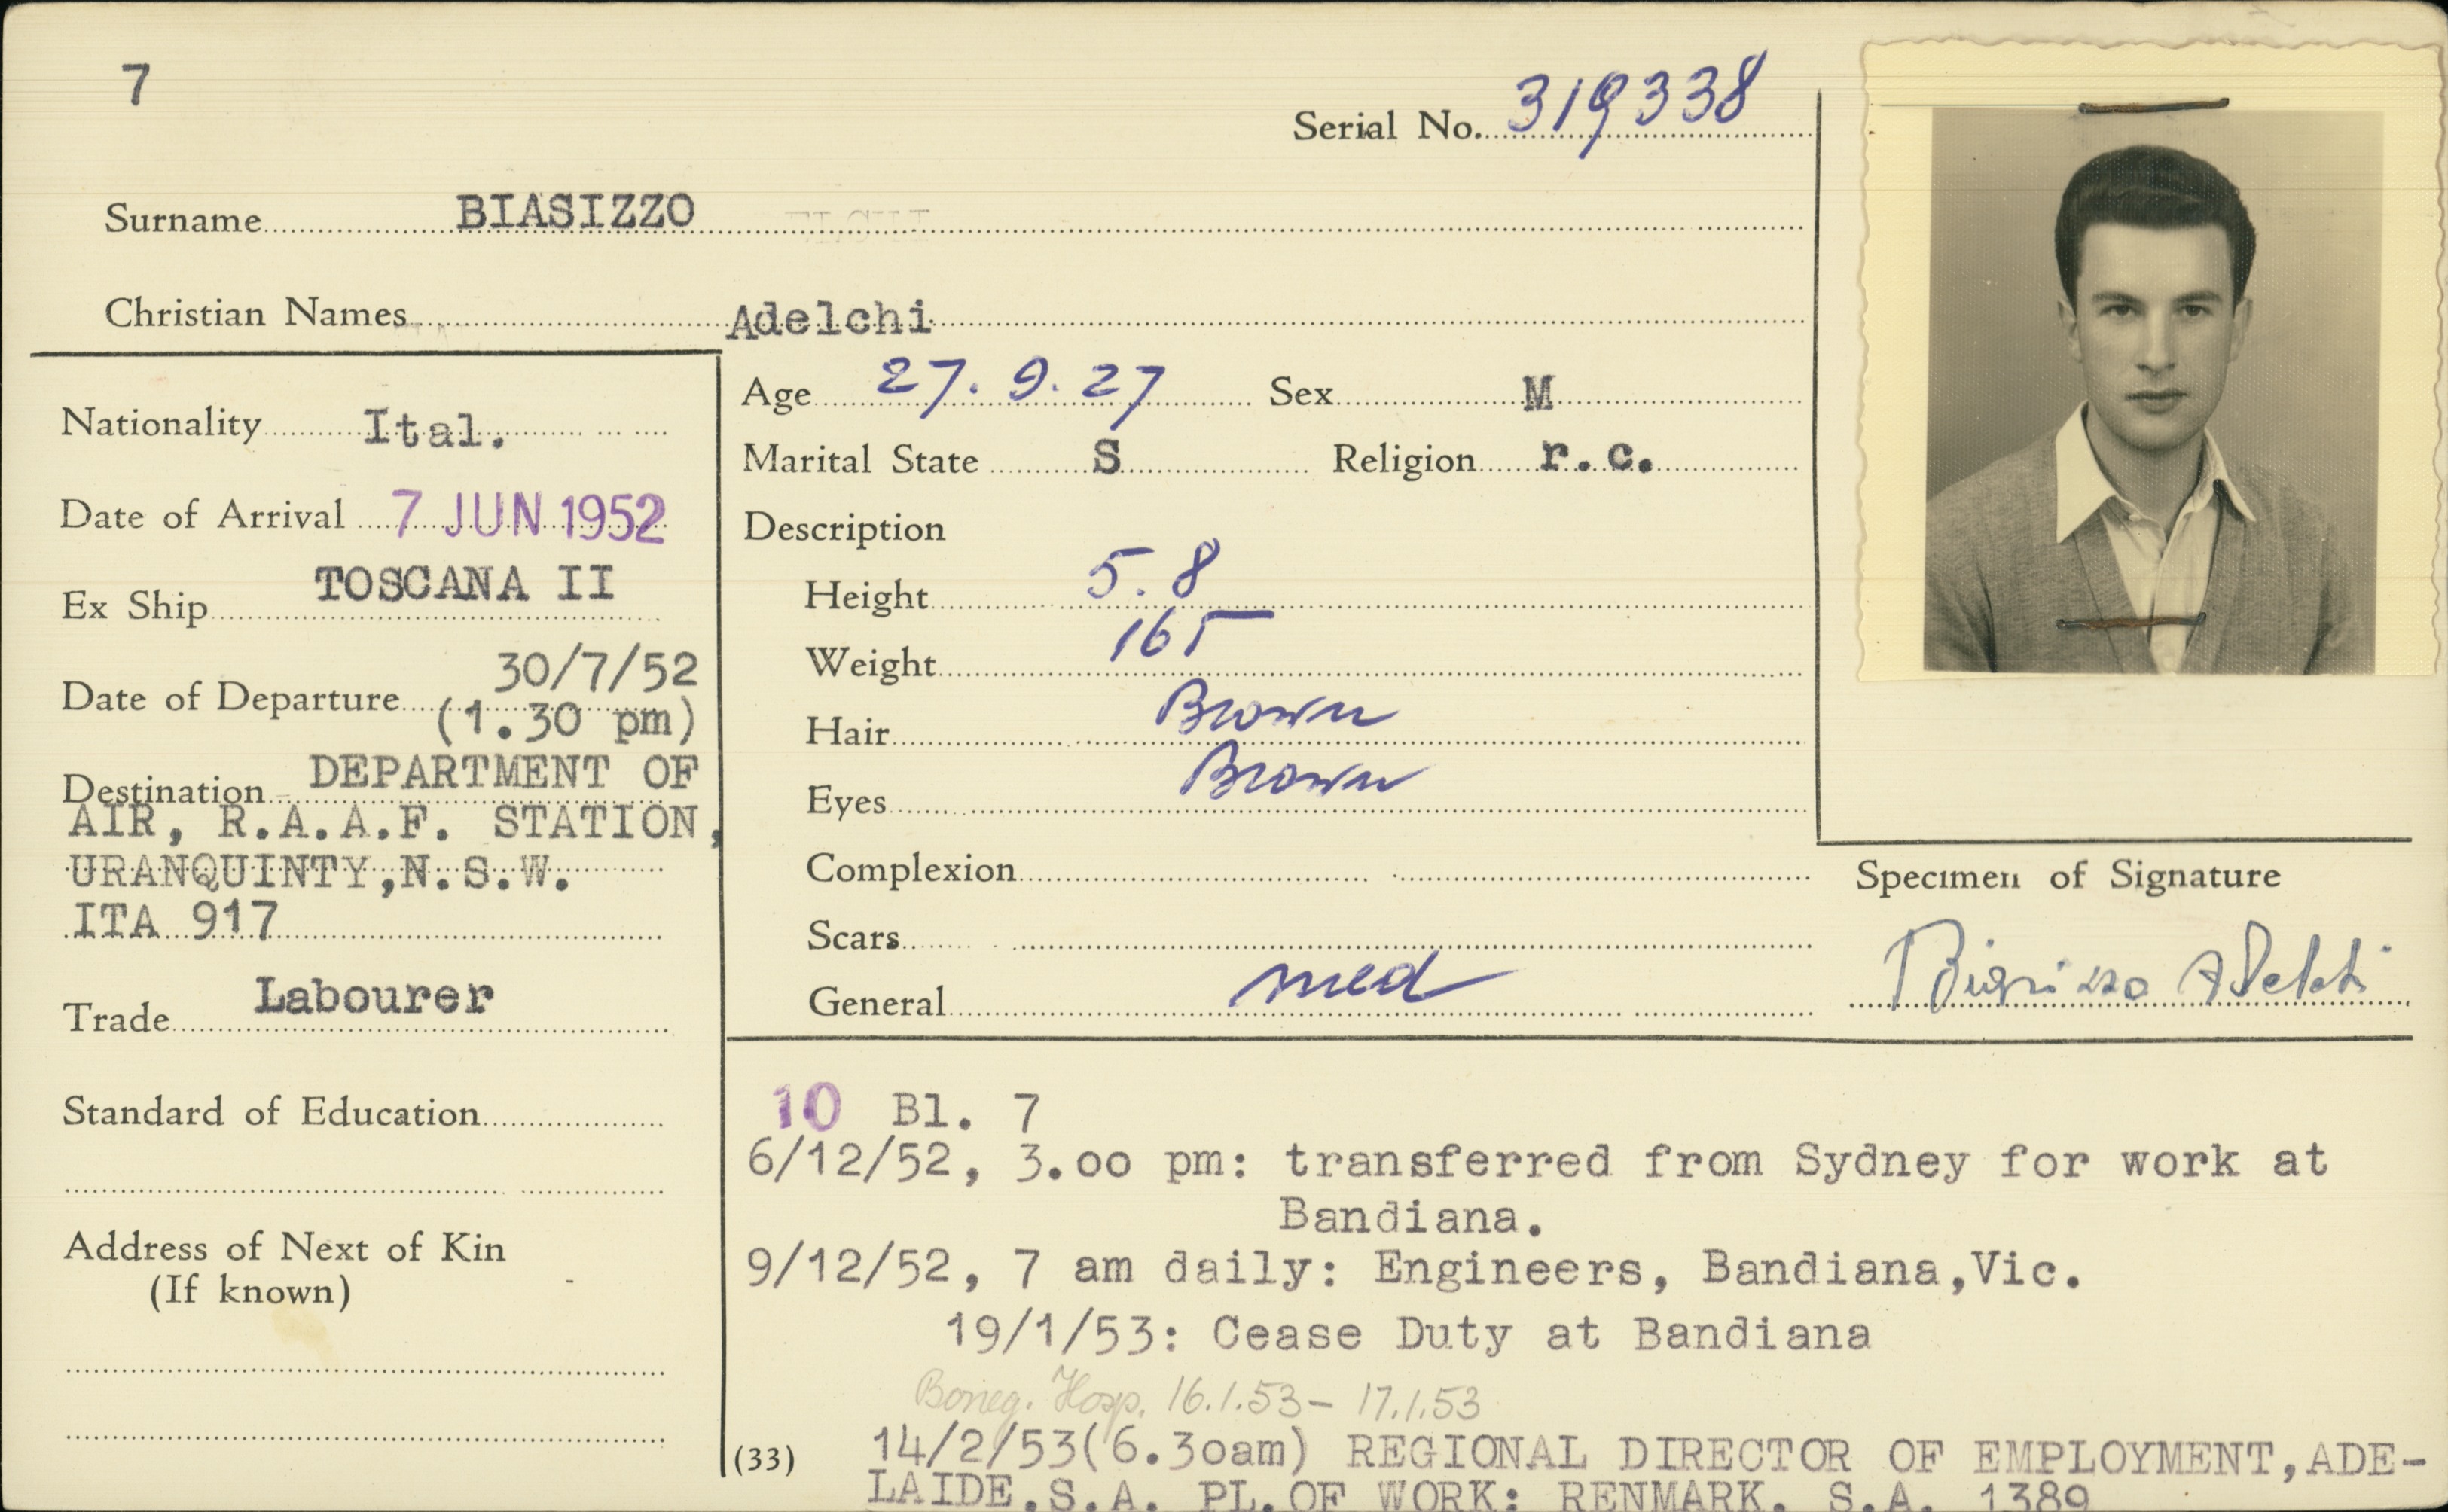 7
Serial No. 319338
Surname BIASIZZO
Christian Names Adelchi
Nationality Ital.
Date of Arrival 7 JUN 1952
Ex Ship TOSCANA II
Date of Departure 30/7/52
(1.30 pm)
Destination DEPARTMENT OF
AIR, R.A.A.F. STATION,
URANQUINTY,N.S.W.
ITA 917
Trade Labourer
Standard of Education
Address of Next of Kin
(If known) -
Age 27.9.27 Sex M
Marital State S Religion r.c.
Description
Height 5.8
Weight 165
Hair Brown
Eyes Brown
Complexion
Scars
General med
Specimen of Signature
Biasizzo Adelchi
10 Bl. 7
6/12/52, 3.oo pm: transferred from Sydney for work at
Bandiana.
9/12/52, 7 am daily: Engineers, Bandiana,Vic.
19/1/53: Cease Duty at Bandiana
Boneg. Hosp. 16.1.53 - 17.1.53
(33) 14/2/53(6.3oam) REGIONAL DIRECTOR OF EMPLOYMENT,ADE-
LAIDE.S.A. PL.OF WORK: RENMARK. S.A. 1389